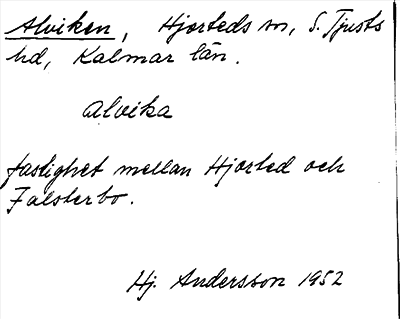 Alviken, Hjorteds sn, S. Tjusts
hd, Kalmar län.
Alvika
fastighet mellan Hjorted och
Falsterbo.
Hj. Andersson 1952